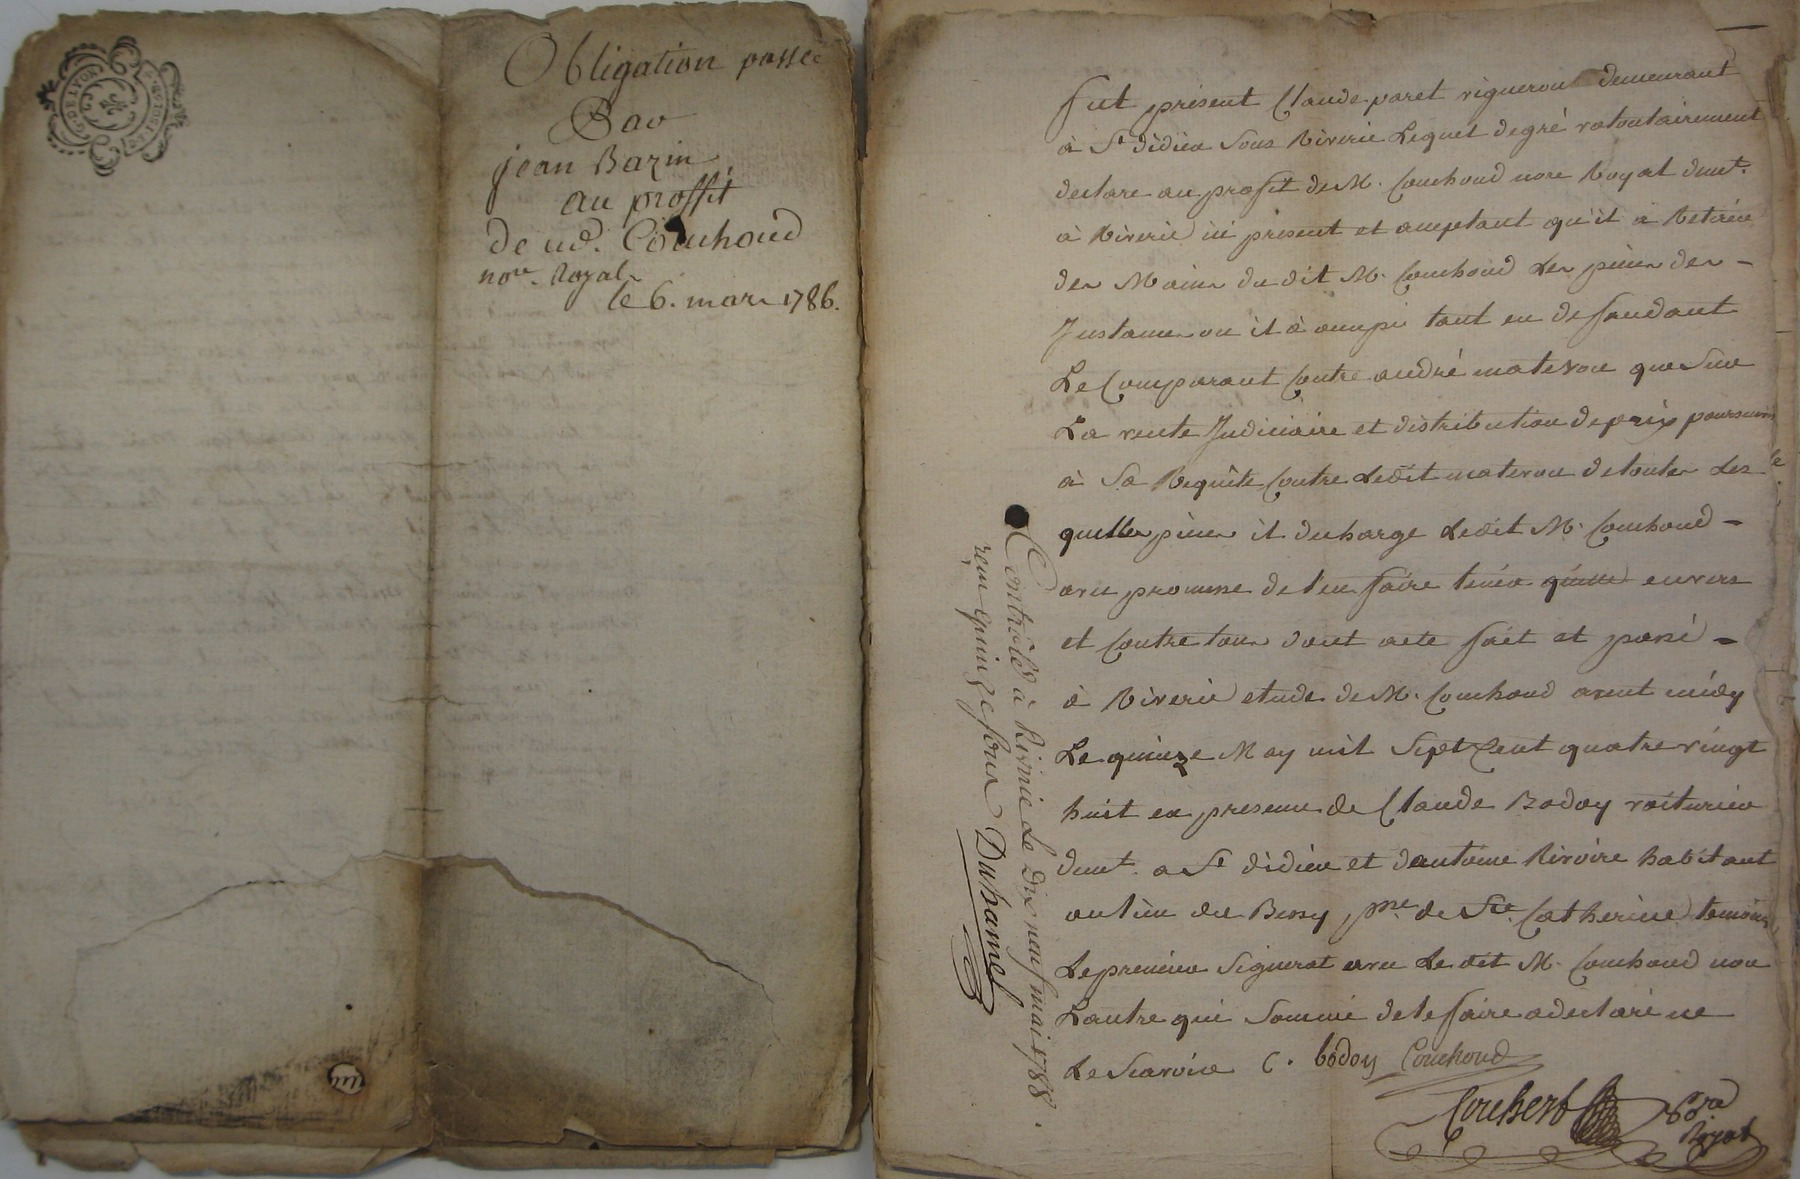 G. D. LYON
Obligation passée
Par
jean Bazin
au proffit
de me. Couhoud
nore. Royal
le 6. mars 1786.
fut présent Claude paret vigneron demeurant
à St didier sous Riverie Lequel de gré volontairement
declare au profit de M. Couhoud nore Royal demt.
à Riverie ici présent et acceptant qu'il a Retirée
des Mains du dit M. Couhoud Les pieces des -
Instances ou il à occupé tant en deffandant
Le Comparant Contre andré matevon que Sur
La vente Judiciaire et distribution de prix poursuivie
à Sa Requête Contre Ledit matevon de toutes Les
quelles pieces il decharge Ledit M. Couhoud -
avec promesse de l'en faire tenir quitte envers
et Contre tous dont acte fait et passé -
à Riverie etude de M. Couhoud avant midy
Le quinze May mil Sept Cent quatre vingt
huit en presence de Claude Bodoy voiturier
demt. a St didier et d'antoine Rivoire habitant
au lieu du Bessy psse de Ste Catherine temoins
Le premier Signerat avec Le dit M. Couhoud non
L'autre qui Sommé de le faire a declaré ne
Le Scavoir C. bodoy Couhoud
Couherb Nore
Royal
Controlé à Riverie Le Dix neuf mai 1788.
reçu quinze sous Duhamel